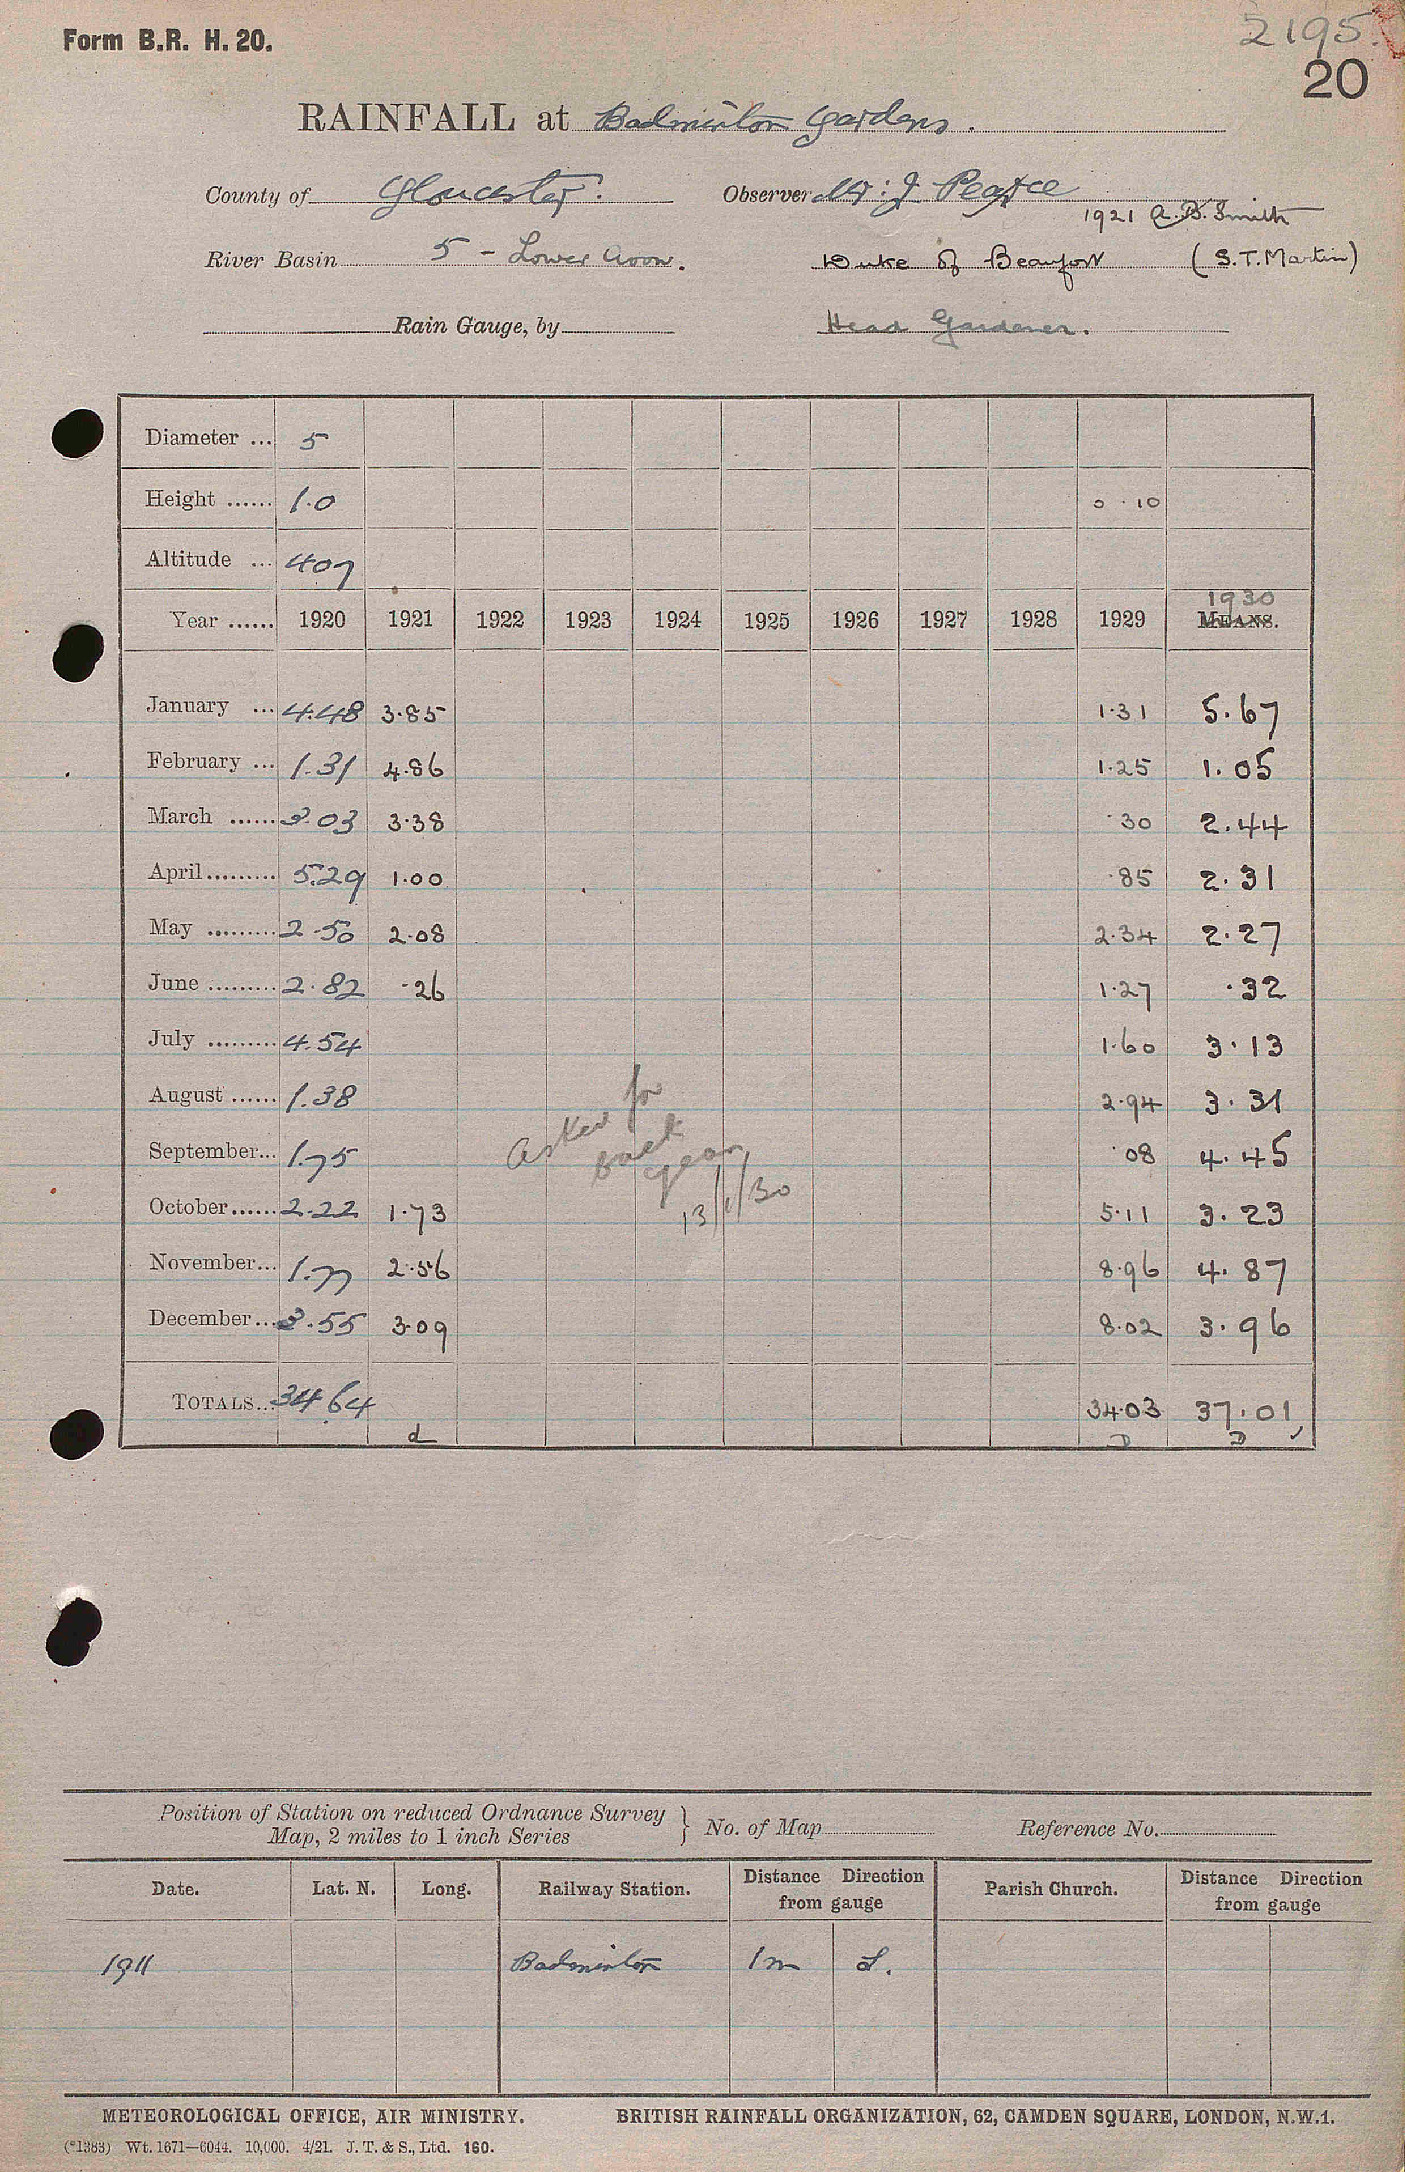 Form B.R. H. 20.
2195.
20
RAINFALL at Badminton Gardens.
County of Gloucester. Observer Mr. J Pearce
1921 A.B. Smith
River Basin 5 - Lower Avon. Duke of Beaufort (S.T. Martin)
Rain Gauge, by Head Gardener.
Diameter ... 5
Height ...... 1.0 0.10
Altitude ... 407
1930
Year ...... 1920 1921 1922 1923 1924 1925 1926 1927 1928 1929 MEANS.
January ... 4.48 3.85 1.31 5.67
February ... 1.31 4.86 1.25 1.05
March ...... 3.03 3.38 .30 2.44
April ......... 5.29 1.00 .85 2.31
May ......... 2.50 2.08 2.34 2.27
June ......... 2.82 .26 1.27 .32
July ......... 4.54 1.60 3.13
August ...... 1.38 2.94 3.31
September... 1.75 .08 4.45
October...... 2.22 1.73 5.11 3.23
November... 1.77 2.56 8.96 4.87
December... 3.55 3.09 8.02 3.96
asked for
back
years
13/1/30
TOTALS... 34 64 34.03 37.01,
d D D
Position of Station on reduced Ordnance Survey
Map, 2 miles to 1 inch Series } No. of Map Reference No.
Date. Lat. N. Long. Railway Station. Distance Direction from gauge Parish Church. Distance Direction from gauge
1911 Badminton 1m
METEOROLOGICAL OFFICE, AIR MINISTRY. BRITISH RAINFALL ORGANIZATION, 62, CAMDEN SQUARE, LONDON, N.W.1.
(*1383) Wt. 1671—6044. 10,000. 4/21. J. T. & S., Ltd. 160.